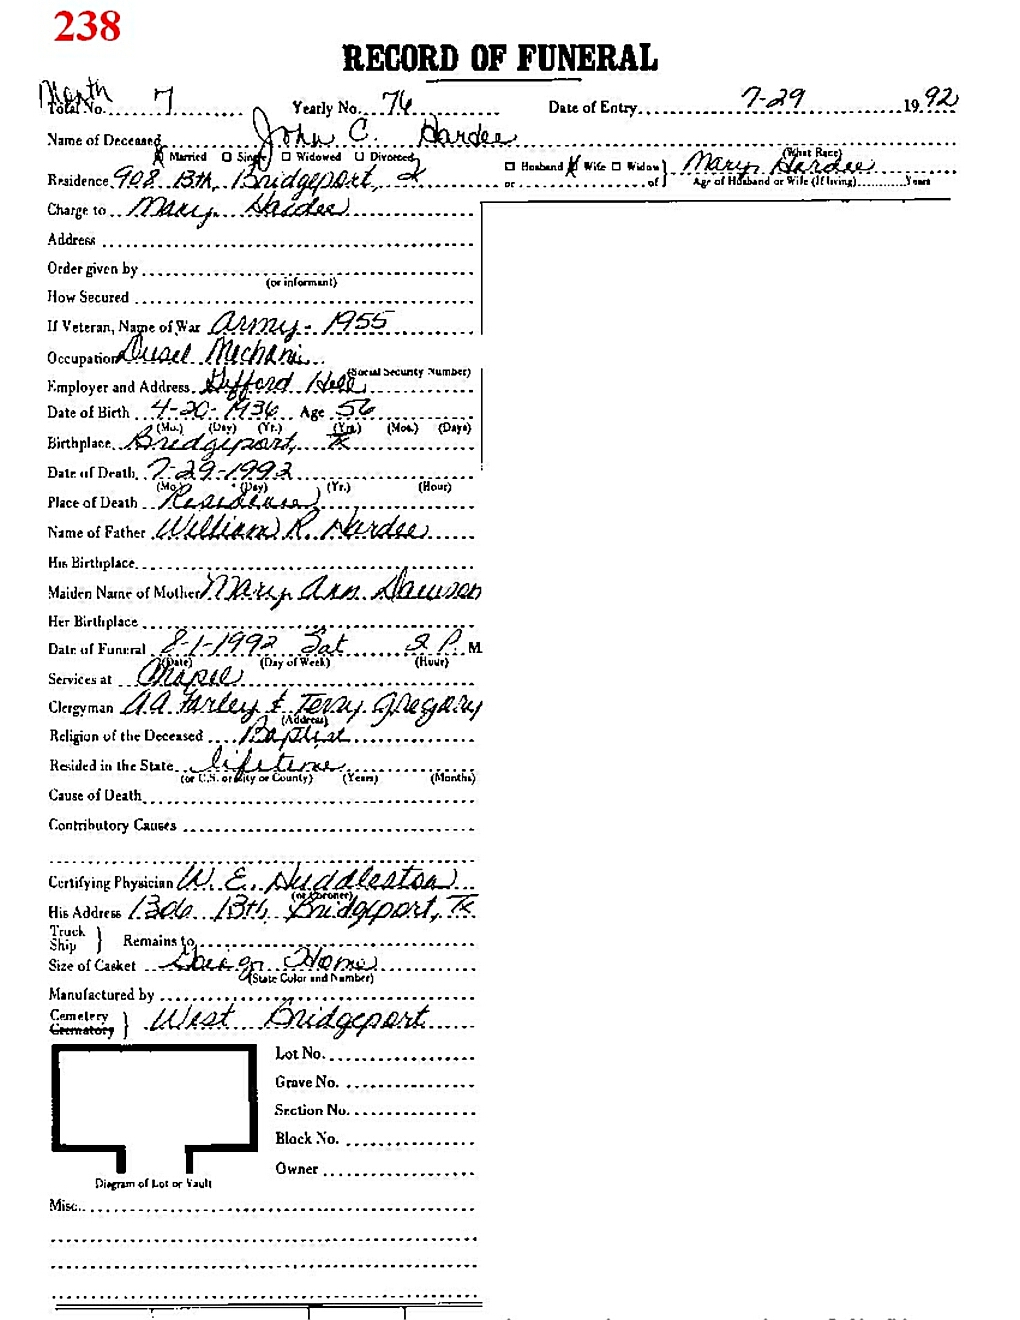 238
RECORD OF FUNERAL
Month
Total No. 7 Yearly No. 76 Date of Entry 7-29 1992
Name of Deceased John C. Hardee
Married Single Widowed Divorced (What Race)
Husband Wife Widow } Mary Hardee
Residence 908 13th, Bridgeport, or of Age of Husband or Wife (If living) Years
Charge to Mary Hardee
Address
Order given by
(or informant)
How Secured
If Veteran, Name of War Army - 1955
Occupation Diesel Mechanic
(Social Security Number)
Employer and Address Gifford Hill
Date of Birth 4-20-1936 Age 56
(Mo.) (Day) (Yr.) (Yrs.) (Mos.) (Days)
Birthplace Bridgeport, Tx
Date of Death 7-29-1992
(Mo.) (Day) (Yr.) (Hour)
Place of Death Residence
Name of Father William R. Hardee
His Birthplace
Maiden Name of Mother Mary Ann Dawson
Her Birthplace
Date of Funeral 8-1-1992 Sat 2 P. M
(Date) (Day of Week) (Hour)
Services at Chapel
Clergyman A.A. Farley & Terry Gregory
(Address)
Religion of the Deceased Baptist
Resided in the State lifetime
(or U.S. or City or County) (Years) (Months)
Cause of Death
Contributory Causes
Certifying Physician W. E. Huddleston
(or Coroner)
His Address 1306 13th, Bridgeport, Tx
Truck
Ship } Remains to
Size of Casket Home
(State Color and Number)
Manufactured by
Cemetery
Crematory } West Bridgeport
Lot No.
Grave No.
Section No.
Block No.
Owner
Diagram of Lot or Vault
Misc.